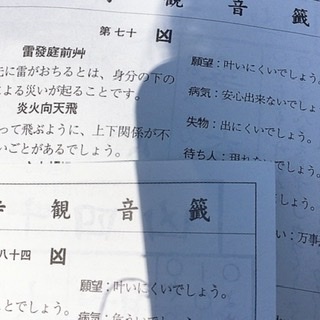 観音籤
第七十 凶
雷發庭前艸
先に雷がおちるとは、身分の下の
よる災いが起ることです。
炎火向天飛
って飛ぶように、上下関係が不
いごとがあるでしょう。
願望：叶いにくいでしょう。
病気：安心出来ないでしょ
失物：出にくいでしょう。
待ち人：現れない
い：万事
観音籤
八十四 凶
願望：叶いにくいでしょう。
ことでしょう。
病気：危ういでしょう。